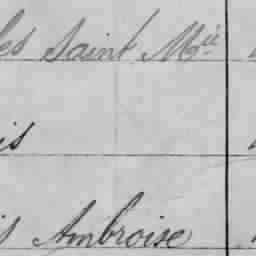 les Saint Mᵍⁱⁱ
is
is Ambroise